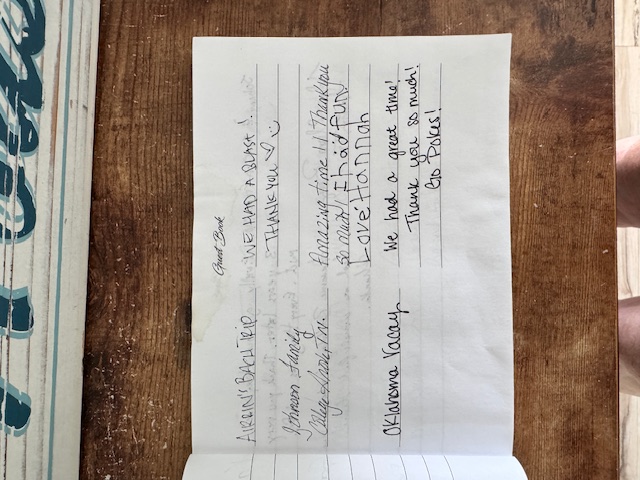 Guest Book
WE HAD A BLAST!
THANK YOU ♡ :)
BACH TRIP
Johnson Family
College Station, Tx.
Amazing time!!! Thank you
so much! I had fun!
Love Hannah
Oklahoma Vacay
We had a great time!
Thank you so much!
Go Pokes!